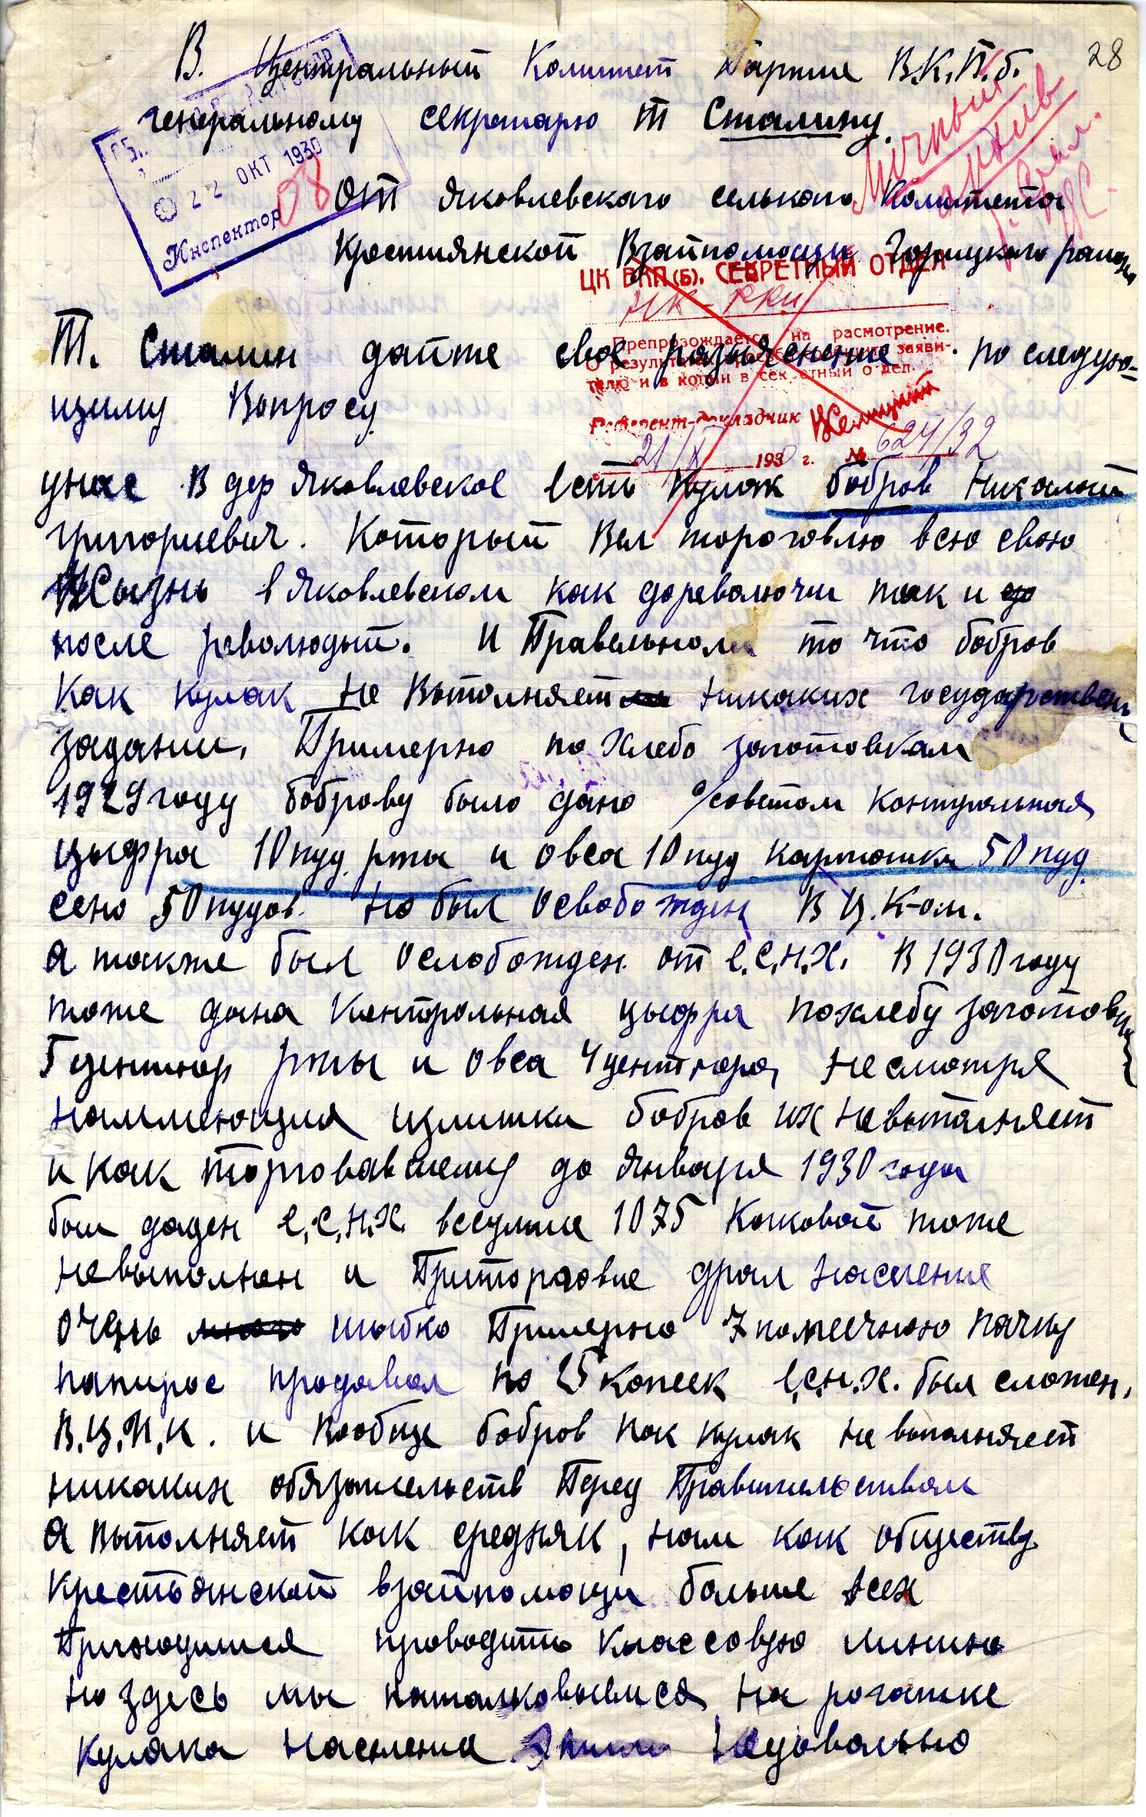 28
В. Центральный Комитет Партие В.К.П.б.
генеральному секретарю т Сталину.
Личный архив
22 ОКТ 1930
Инспектор 08
От Яковлевского селького Комитета
Крестиянской Взаипомощи Горицкого района
ЦК ВКП(б). СЕКРЕТНЫЙ ОТДЕЛ
НК-РКИ
Препровождается на расмотрение.
О результатах заяви-
телю и в копии в секретный отдел.
Референт-докладчик
21/X 1930 г. № 624/32
Т. Сталин дайте свое разъяснение по следую-
щиму Вопросу
унас В дер Яковлевское есть Кулак бобров Никалай
григориевич. Который Вел торговлю всю свою
Жызнь в Яковлевском как дореволючи так и до
после революцыи. И Правельном то что бобров
Как кулак не Выполняет никаких государствен
задании, Примерно по хлебо заготовкам
1929 году боброву было дано с/советом контрольная
цыфра 10 пуд. ржы и овса 10 пуд картошки 50 пуд.
сено 50 пудов. Но был Освобожден В Ц.К-ом.
а также был ослобожден от е.С.Н.Х. В 1930 году
тоже дана Контрольная цыфра похлебу заготовки
ржы и овса 4 центнера, несмотря
наимеющия излишки бобров их невыполняет
и как торговавшему до Января 1930 года
был даден е.С.Н.Х. вссумме 1075 Каковой тоже
невыполнен и Приторговле драл Населения
очень шыбко Примерно 7 помеечною пачку
папирос продовал по 25 копеек е.с.н.х. был сложен.
В.Ц.И.К. и Вообще бобров как кулак не выполняет
никаких обязательств Перед Правительством
а Выполняет как средняк, нам как обществу
крестьянской взаипомощи больше всех
Приходится проводить классовую линию
но здесь мы наталковываемся на рогатке
Кулака населения Недовольно